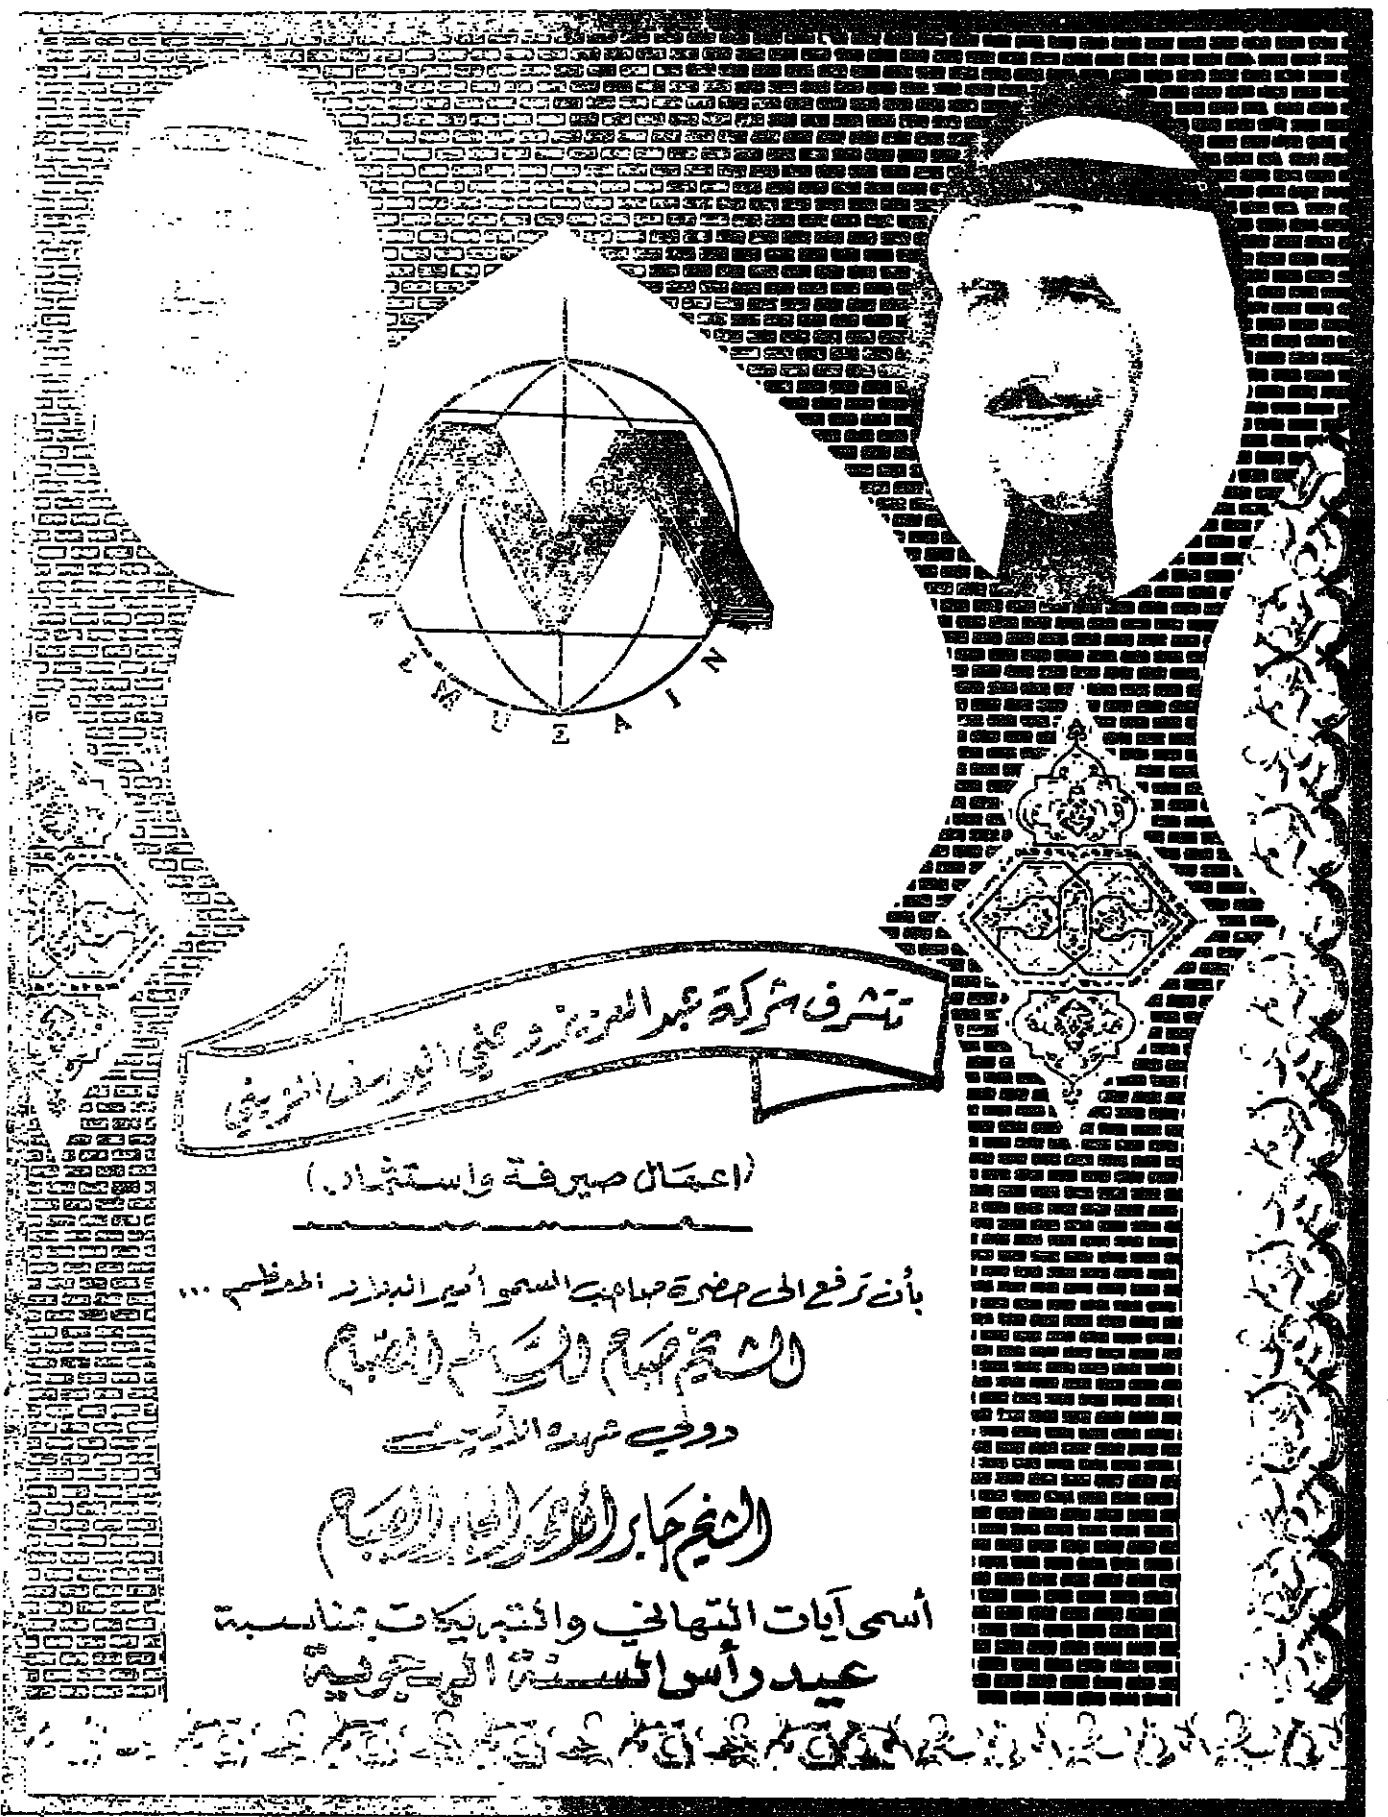 EMUZAIN
تتشرف شركة عبد العزيز وعلي اليوسف المزيني
(اعمال صيرفة واستثمار)
بأن ترفع الى حضرة صاحب السمو أمير البلاد المعظم ...
الشيخ صباح السالم الصباح
وولي عهده الأمين
الشيخ جابر الأحمد الجابر الصباح
أسمى آيات التهاني والتبريكات بمناسبة
عيد رأس السنة الهجرية